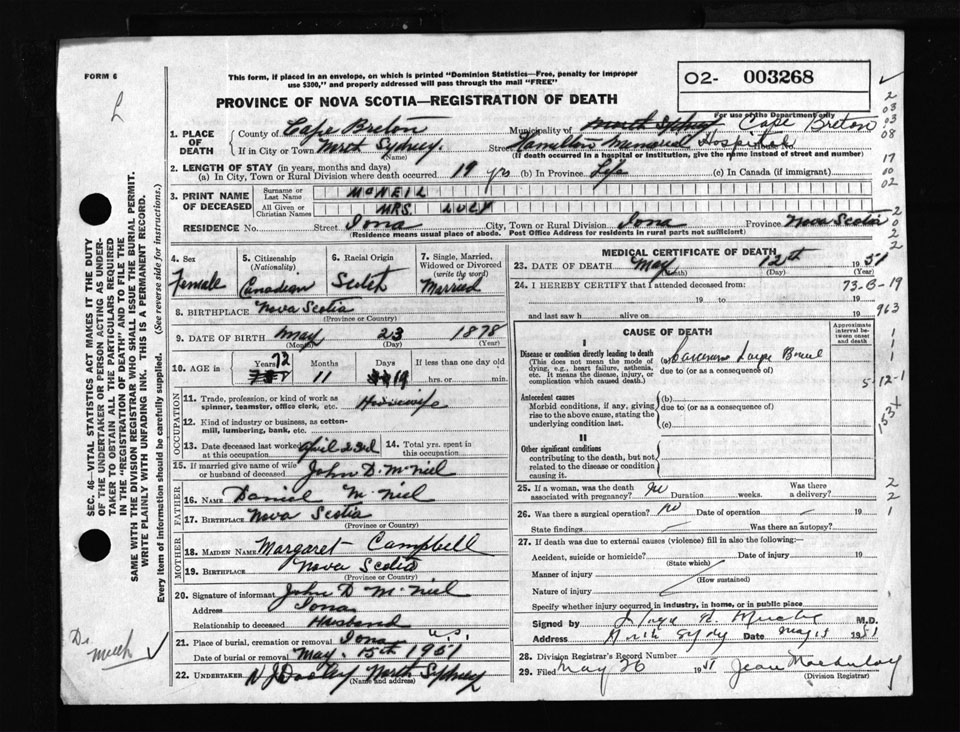 FORM 6
This form, if placed in an envelope, on which is printed "Dominion Statistics—Free, penalty for improper
use $300," and properly addressed will pass through the mail "FREE"
O2- 003268
For use of the Department only
PROVINCE OF NOVA SCOTIA—REGISTRATION OF DEATH
1. PLACE OF DEATH
County of Cape Breton
Municipality of North Sydney Cape Breton
If in City or Town North Sydney.
(Name)
Street Hamilton Memorial Hospital
(If death occurred in a hospital or institution, give the name instead of street and number)
2. LENGTH OF STAY (in years, months and days)
(a) In City, Town or Rural Division where death occurred 19 yrs (b) In Province Life (c) In Canada (if immigrant)
3. PRINT NAME OF DECEASED
Surname or Last Name McNEIL
All Given or Christian Names MRS. LUCY
RESIDENCE No. Street Iona City, Town or Rural Division Iona Province Nova Scotia
(Residence means usual place of abode. Post Office Address for residents in rural parts not sufficient)
4. Sex
Female
5. Citizenship
(Nationality)
Canadian
6. Racial Origin
Scotch
7. Single, Married,
Widowed or Divorced
(write the word)
Married
8. BIRTHPLACE Nova Scotia
(Province or Country)
9. DATE OF BIRTH May 23 1878
(Month) (Day) (Year)
10. AGE in
Years 72
Months 11
Days 19
If less than one day old
hrs. or min.
OCCUPATION
11. Trade, profession, or kind of work as
spinner, teamster, office clerk, etc. Housewife
12. Kind of industry or business, as cotton-
mill, lumbering, bank, etc.
13. Date deceased last worked
at this occupation April 23rd
14. Total yrs. spent in
this occupation
15. If married give name of wife
or husband of deceased John D. McNeil
FATHER
16. NAME Daniel McNiel
17. BIRTHPLACE Nova Scotia
(Province or Country)
MOTHER
18. MAIDEN NAME Margaret Campbell
19. BIRTHPLACE Nova Scotia
(Province or Country)
20. Signature of informant John D McNiel
Address Iona
Relationship to deceased Husband
21. Place of burial, cremation or removal Iona
Date of burial or removal May. 15th 1951
22. UNDERTAKER N J Dooley North Sydney
(Name and address)
MEDICAL CERTIFICATE OF DEATH
23. DATE OF DEATH May 12th 1951
(Month) (Day) (Year)
24. I HEREBY CERTIFY that I attended deceased from:
19 to 19
and last saw h alive on 19
CAUSE OF DEATH
Approximate
interval be-
tween onset
and death
I
Disease or condition directly leading to death
(This does not mean the mode of
dying, e.g., heart failure, asthenia,
etc. It means the disease, injury, or
complication which caused death.)
(a) Carcinoma Large Bowel
due to (or as a consequence of)
Antecedent causes
Morbid conditions, if any, giving
rise to the above cause, stating the
underlying condition last.
(b)
due to (or as a consequence of)
(c)
II
Other significant conditions
contributing to the death, but not
related to the disease or condition
causing it.
25. If a woman, was the death
associated with pregnancy? no Duration weeks. Was there
a delivery?
26. Was there a surgical operation? no Date of operation 19
State findings Was there an autopsy?
27. If death was due to external causes (violence) fill in also the following:—
Accident, suicide or homicide? Date of injury 19
(State which)
Manner of injury
(How sustained)
Nature of injury
Specify whether injury occurred in industry, in home, or in public place
Signed by M.D.
Address North Sydney Date May 15 1951
28. Division Registrar's Record Number
29. Filed May 26 1951 Jean
(Division Registrar)
SEC. 46—VITAL STATISTICS ACT MAKES IT THE DUTY
OF THE UNDERTAKER OR PERSON ACTING AS UNDER-
TAKER TO OBTAIN ALL THE PARTICULARS REQUIRED
IN THE "REGISTRATION OF DEATH" AND TO FILE THE
SAME WITH THE DIVISION REGISTRAR WHO SHALL ISSUE THE BURIAL PERMIT.
WRITE PLAINLY WITH UNFADING INK. THIS IS A PERMANENT RECORD.
Every item of information should be carefully supplied. (See reverse side for instructions.)
2
03
03
08
17
10
02
2
0
2
2
73-B-19
963
1
1
1
5-12-1
153+
2
2
1